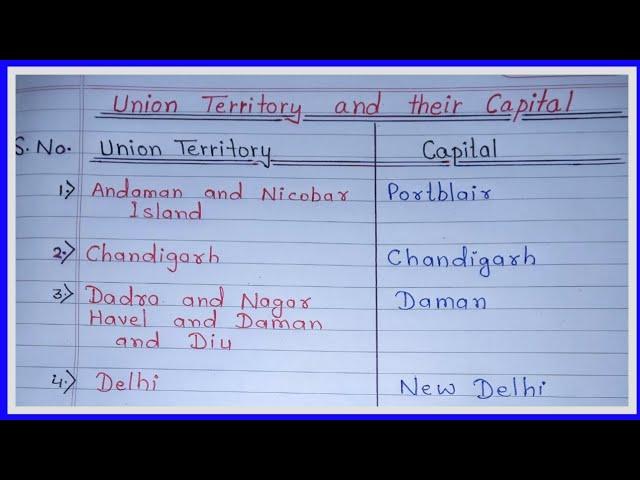 Union Territory and their Capital
S. No. Union Territory Capital
1.) Andaman and Nicobar Portblair
Island
2.) Chandigarh Chandigarh
3.) Dadra and Nagar Daman
Havel and Daman
and Diu
4.) Delhi New Delhi